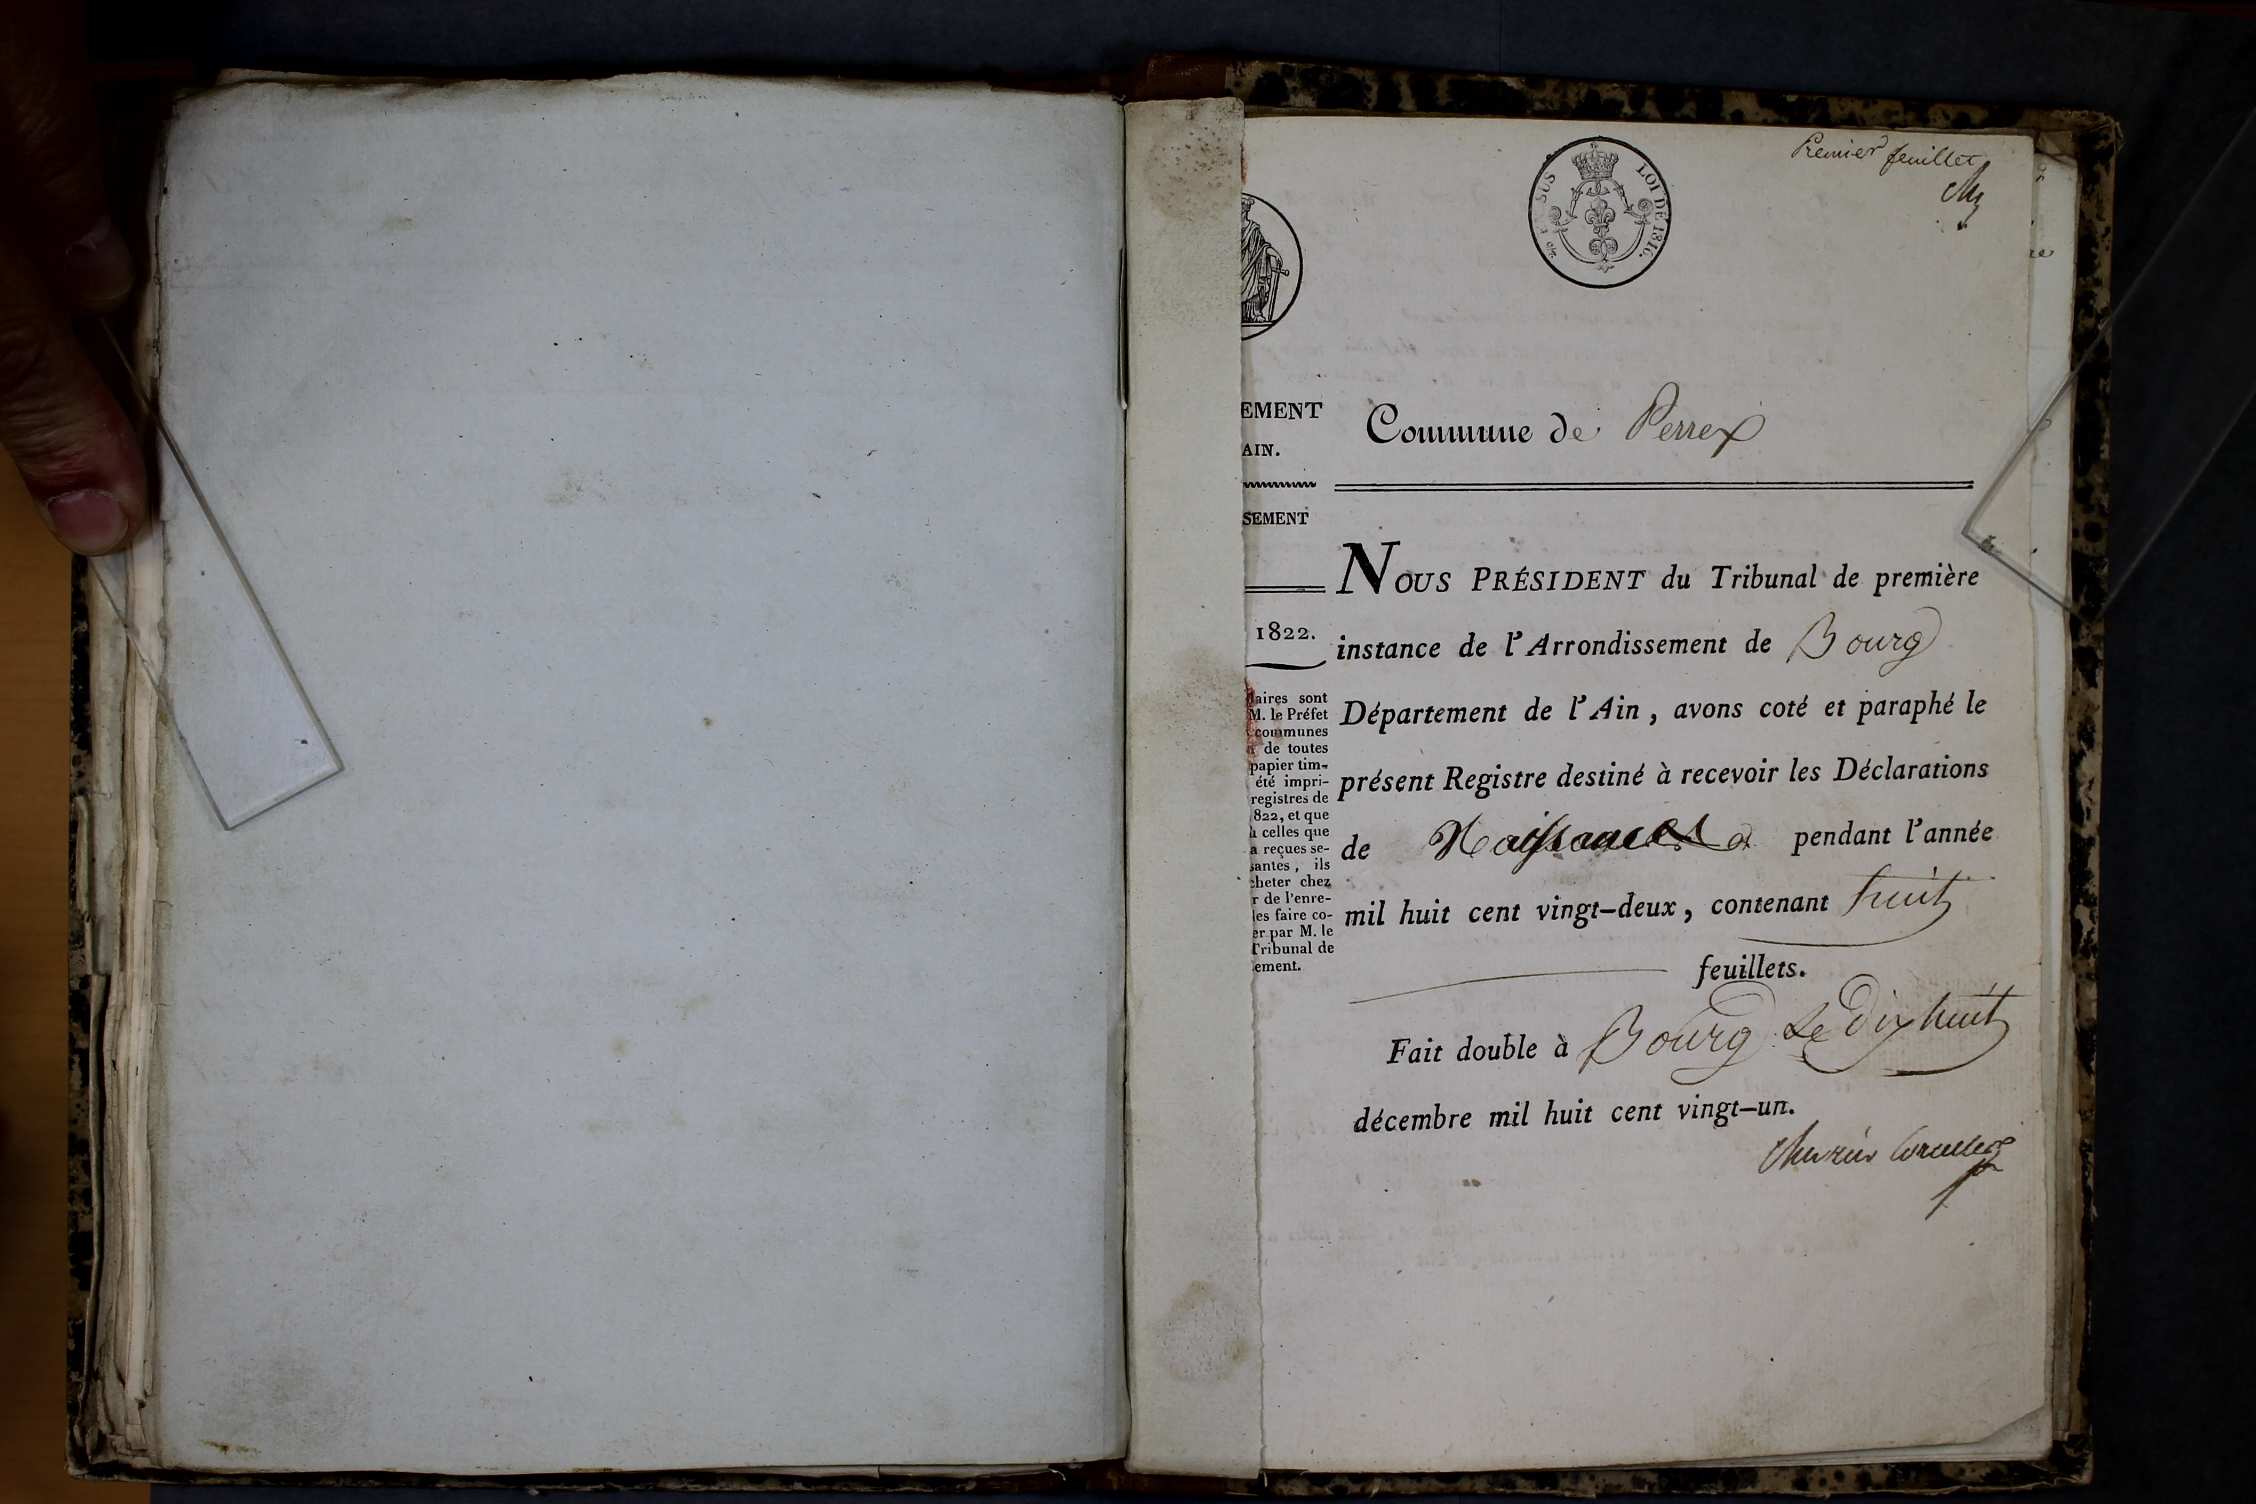 Premier feuillet
EN SUS LOI DE 1816.
EMENT
AIN.
SEMENT
1822.
aires sont
M. le Préfet
communes
de toutes
papier tim-
été impri-
registres de
822, et que
celles que
a reçues se-
santes, ils
cheter chez
r de l'enre-
les faire co-
er par M. le
Tribunal de
ement.
Commune de Perrex
NOUS PRÉSIDENT du Tribunal de première
instance de l'Arrondissement de Bourg
Département de l'Ain, avons coté et paraphé le
présent Registre destiné à recevoir les Déclarations
de Naissances pendant l'année
mil huit cent vingt-deux, contenant huit
feuillets.
Fait double à Bourg le dix huit
décembre mil huit cent vingt-un.